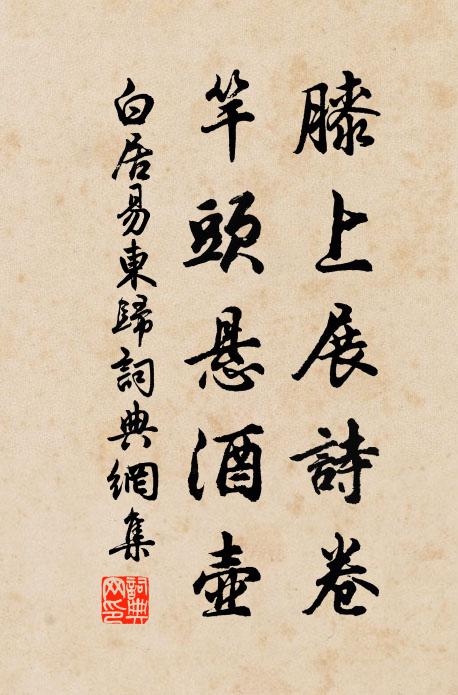 膝上展詩卷
竿頭悬酒壺
白居易東歸詞典網集
詞典
网印